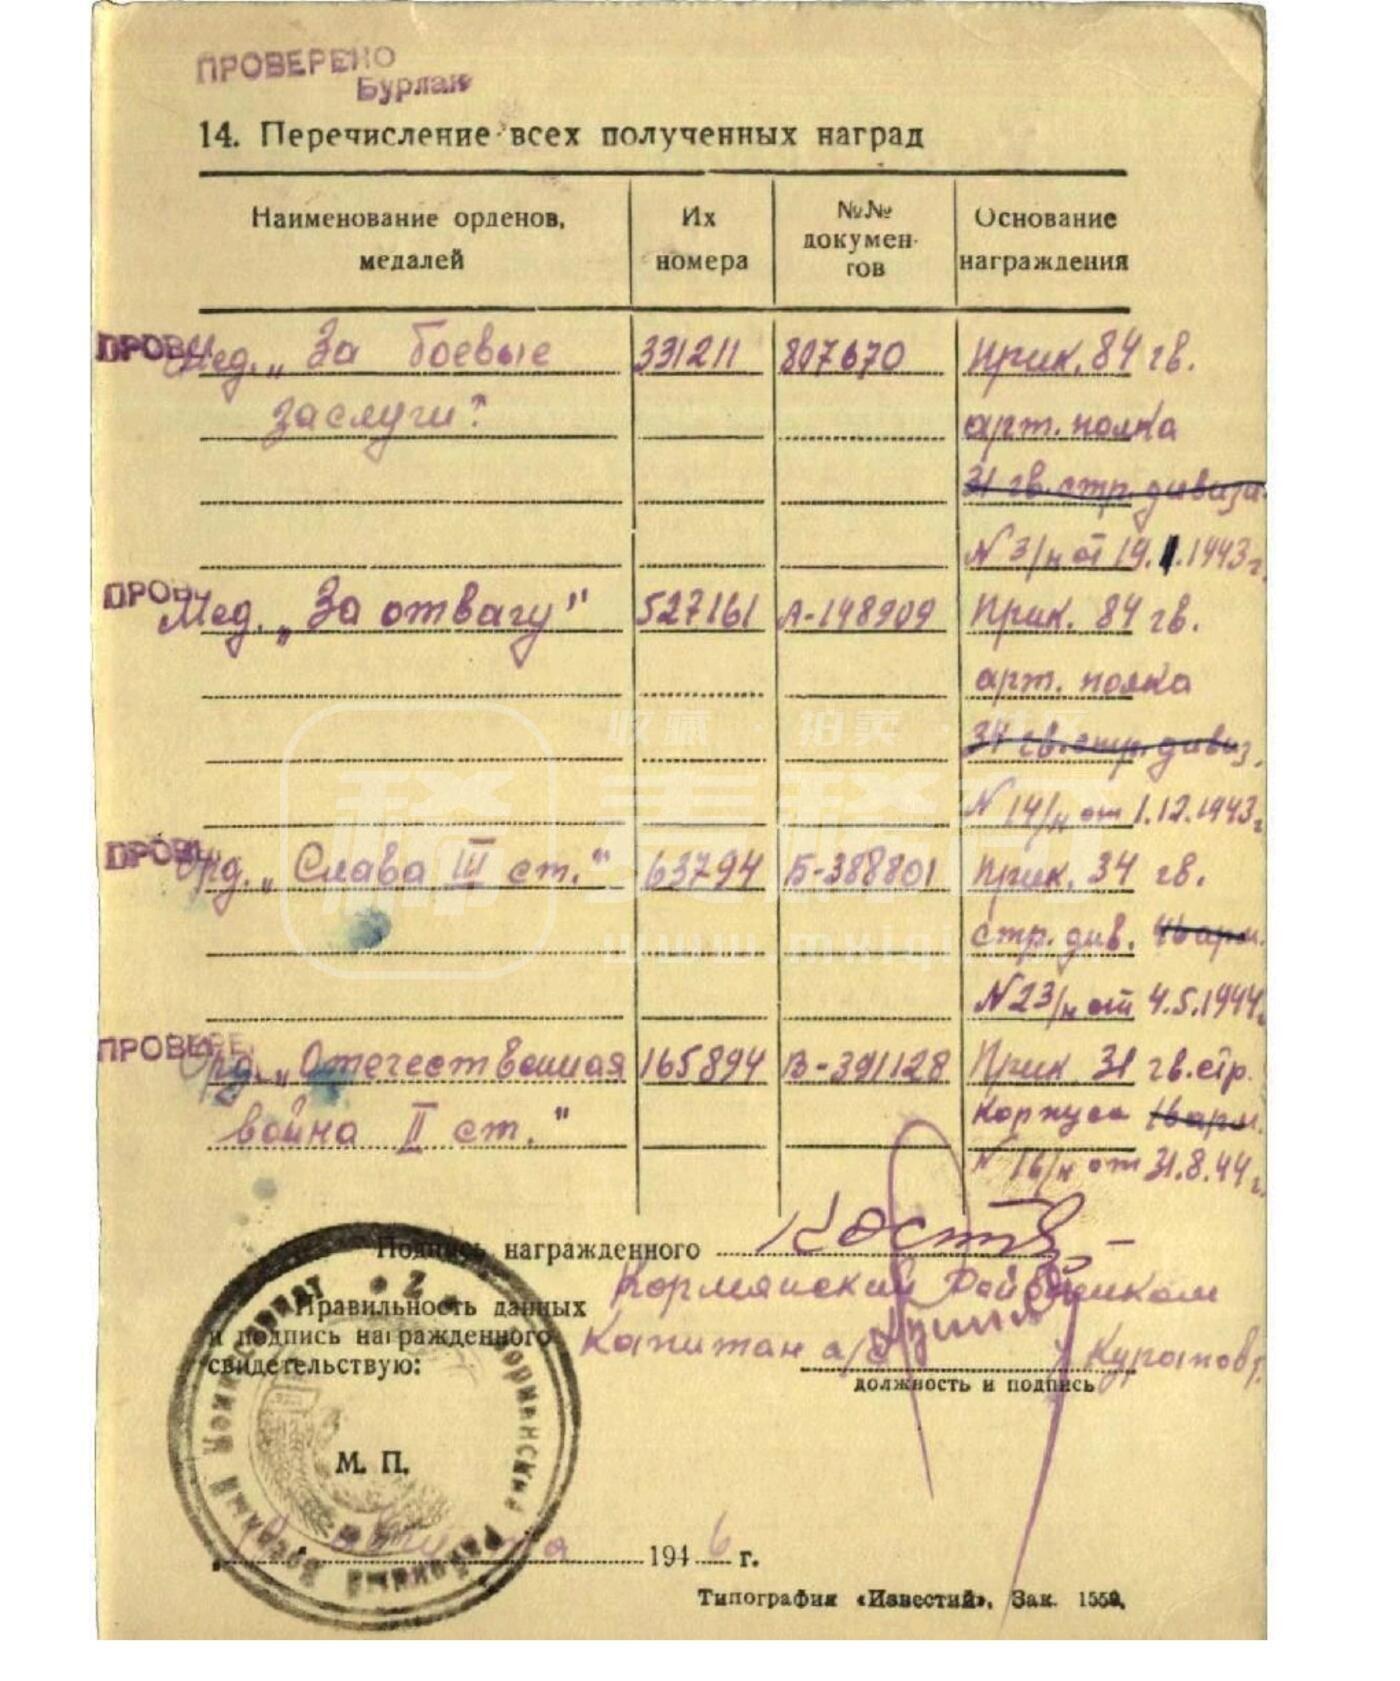 ПРОВЕРЕНО
Бурлак
14. Перечисление всех полученных наград
Наименование орденов, медалей
Их номера
№№ документов
Основание награждения
ПРОВЕ
Мед. „За боевые 331211 807670 Прик. 84 гв.
заслуги" арт. полка
31 гв. стр. дивиз.
N 3/н от 1943 г.
ПРОВ
Мед. „За отвагу" 527161 А-148909 Прик. 84 гв.
арт. полка
收藏 · 拍卖 ·
гв. стр. дивиз.
N 14/н от 1.12.1943 г.
美稀奇
ПРОВ
Орд. „Слава III ст." 63794 Б-388801 Прик. 34 гв.
стр. див.
www.mxiqi
N 23/н от 4.5.1944 г.
ПРОВЕРЕ
Орд. „Отечественная 165894 В-391128 Прик 31 гв. стр.
война II ст." корпуса
N 16/н от 31.8.44 г.
Подпись награжденного
Кормянский Райвоенком
Правильность данных
и подпись награжденного
свидетельствую:
Капитан а/с
должность и подпись
М. П.
1946 г.
Типография «Известий». Зак. 1559.